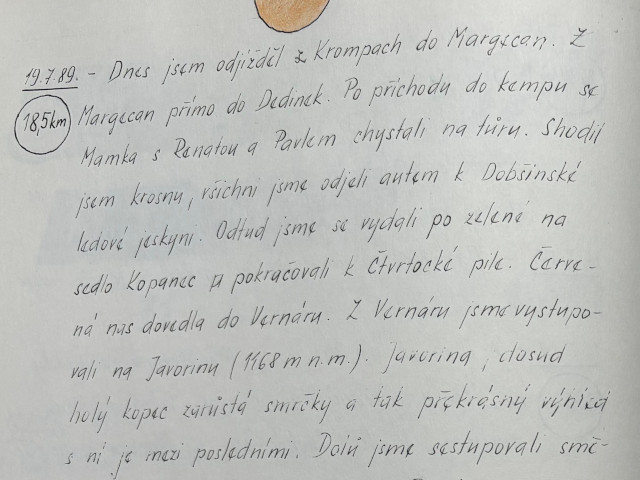 19.7.89. - Dnes jsem odjížděl z Krompach do Margecan. Z
18,5km Margecan přímo do Dedinek. Po příchodu do kempu se
Mamka s Renatou a Pavlem chystali na túru. Shodil
jsem krosnu, všichni jsme odjeli autem k Dobšinské
ledové jeskyni. Odtud jsme se vydali po zelené na
sedlo Kopanec a pokračovali k Čtvrtocké pile. Červe-
ná nás dovedla do Vernáru. Z Vernáru jsme vystupo-
vali na Javorinu (1168 m n.m.). Javorina, dosud
holý kopec zarůstá smrčky a tak překrásný výhled
s ní je mezi posledními. Dolů jsme sestupovali smě-